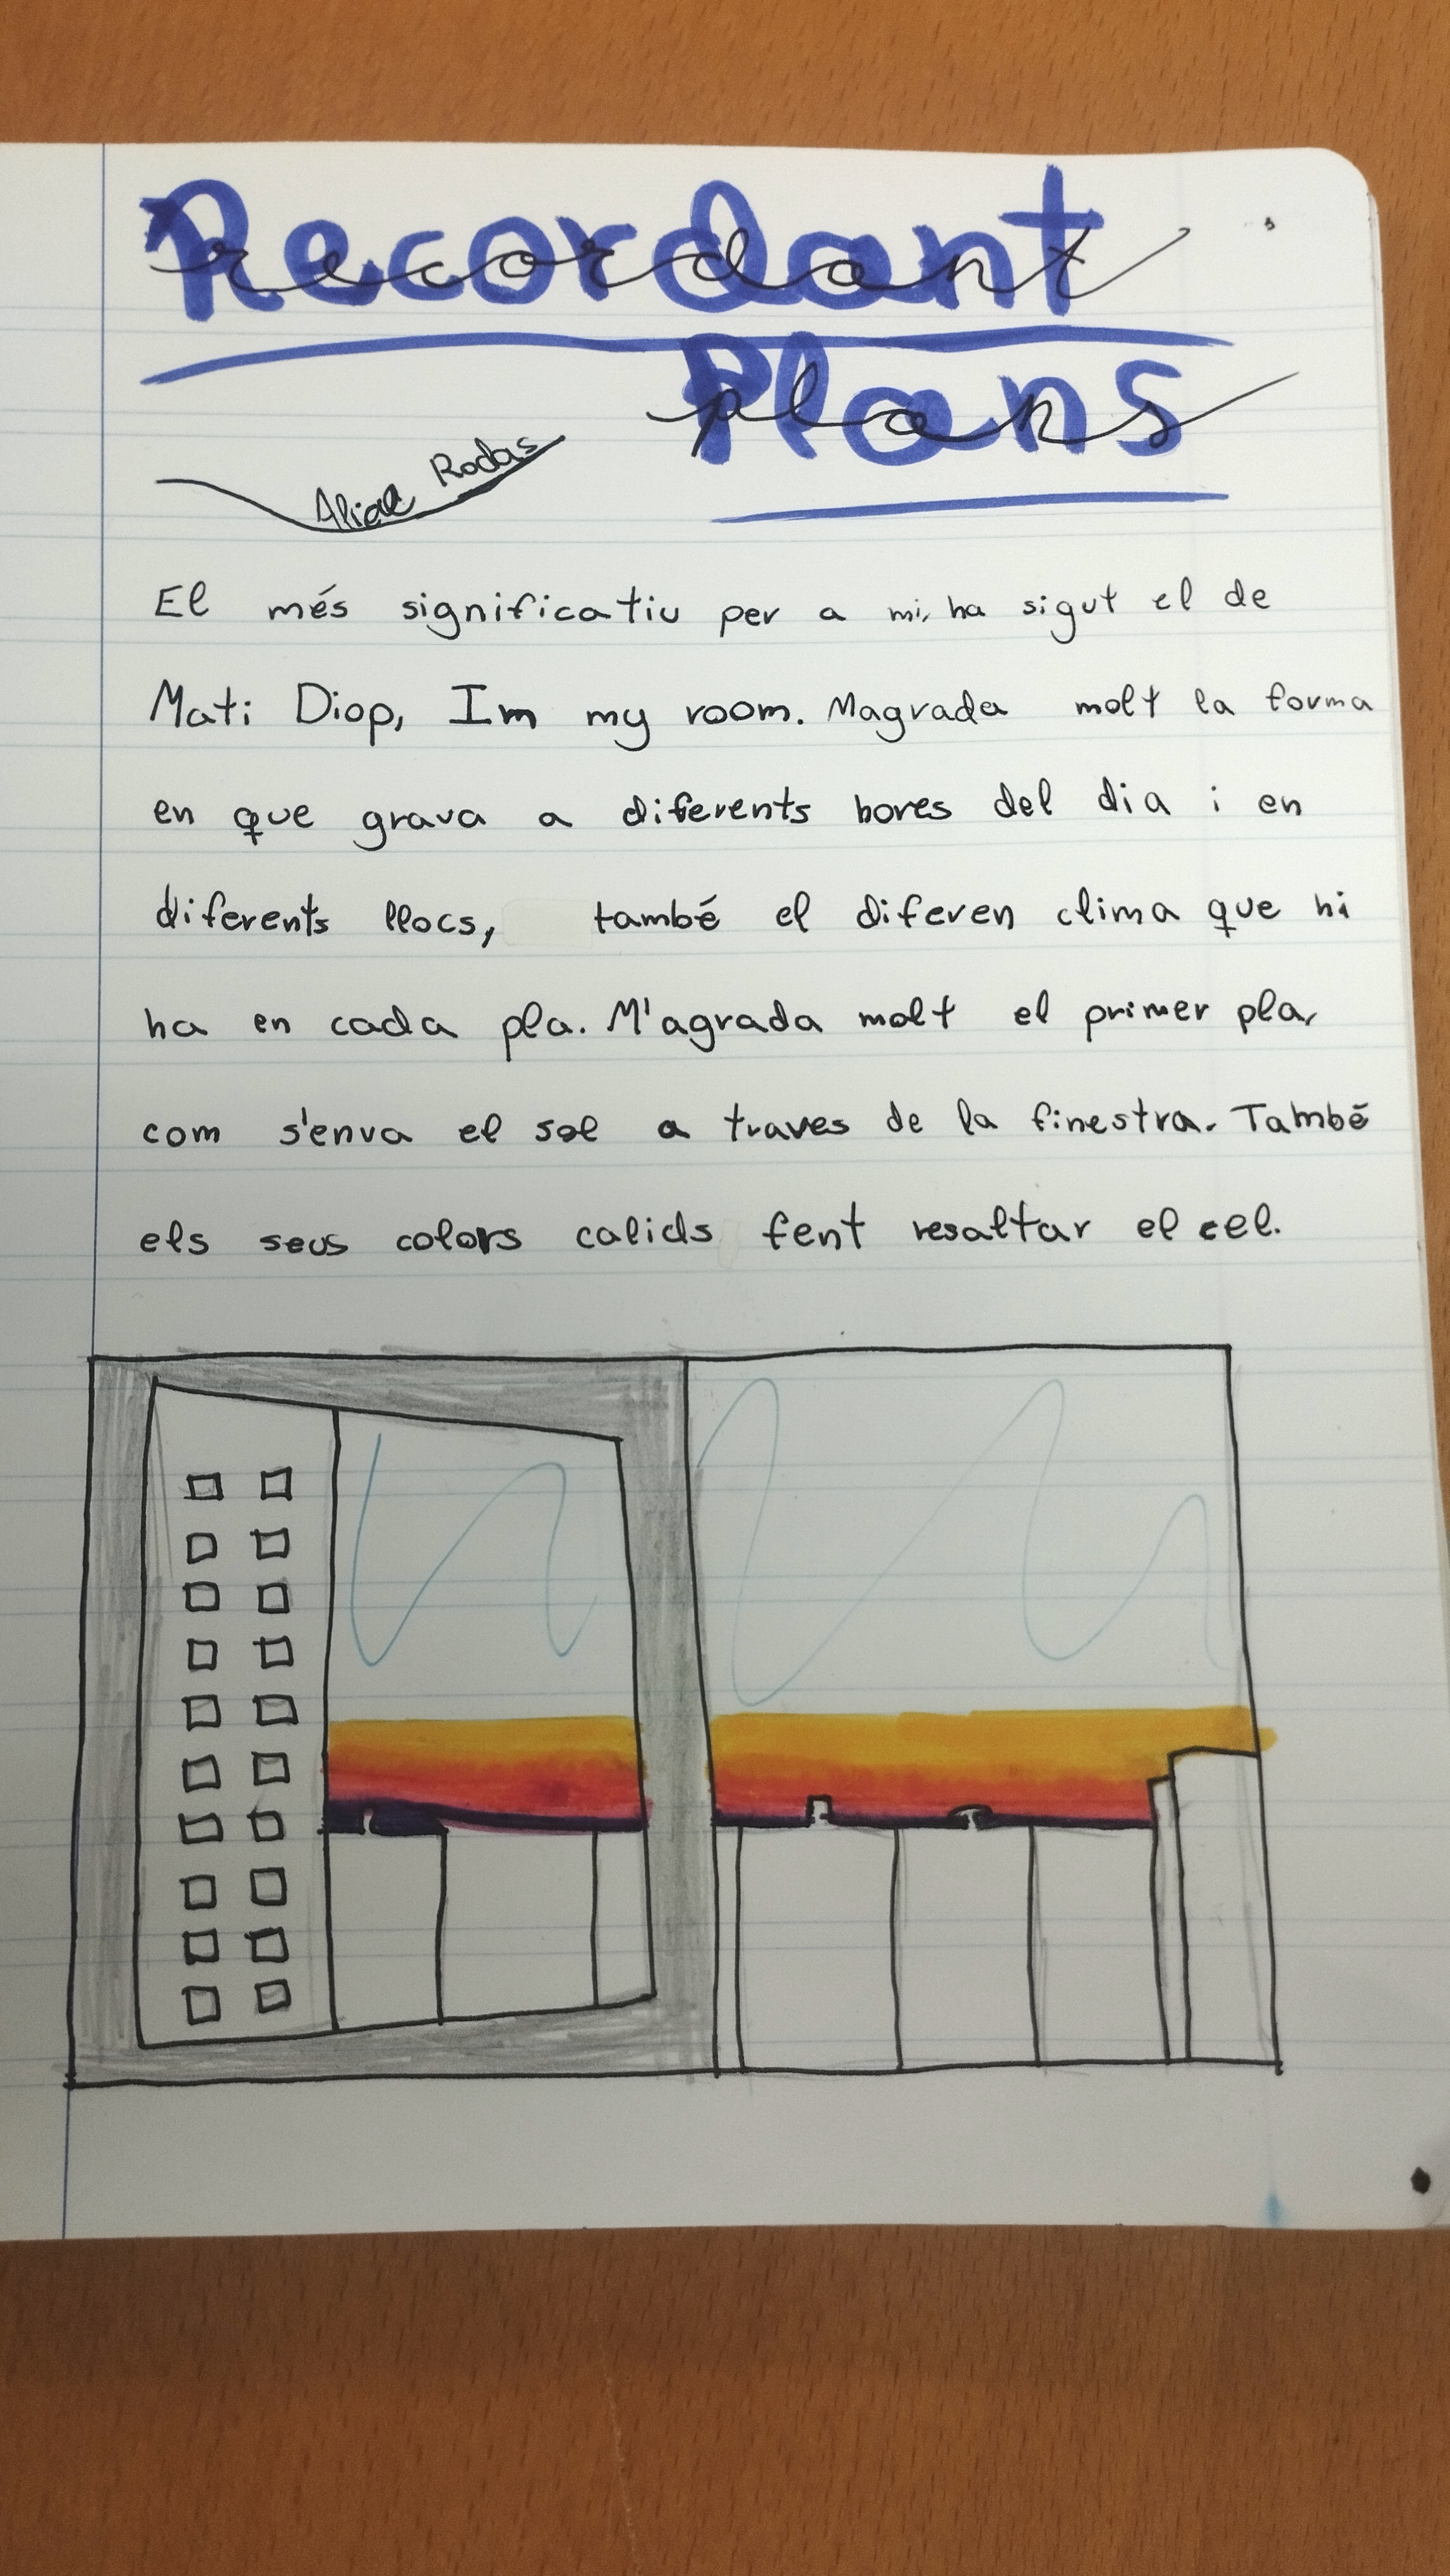 Recordant
recordant
Plans
plans
Rodas
El més significatiu per a mi, ha sigut el de
Mati Diop, Im my room. Magrada molt la forma
en que grava a diferents hores del dia i en
diferents llocs, també el diferen clima que hi
ha en cada pla. M'agrada molt el primer pla,
com s'enva el sol a traves de la finestra. També
els seus colors calids fent resaltar el cel.